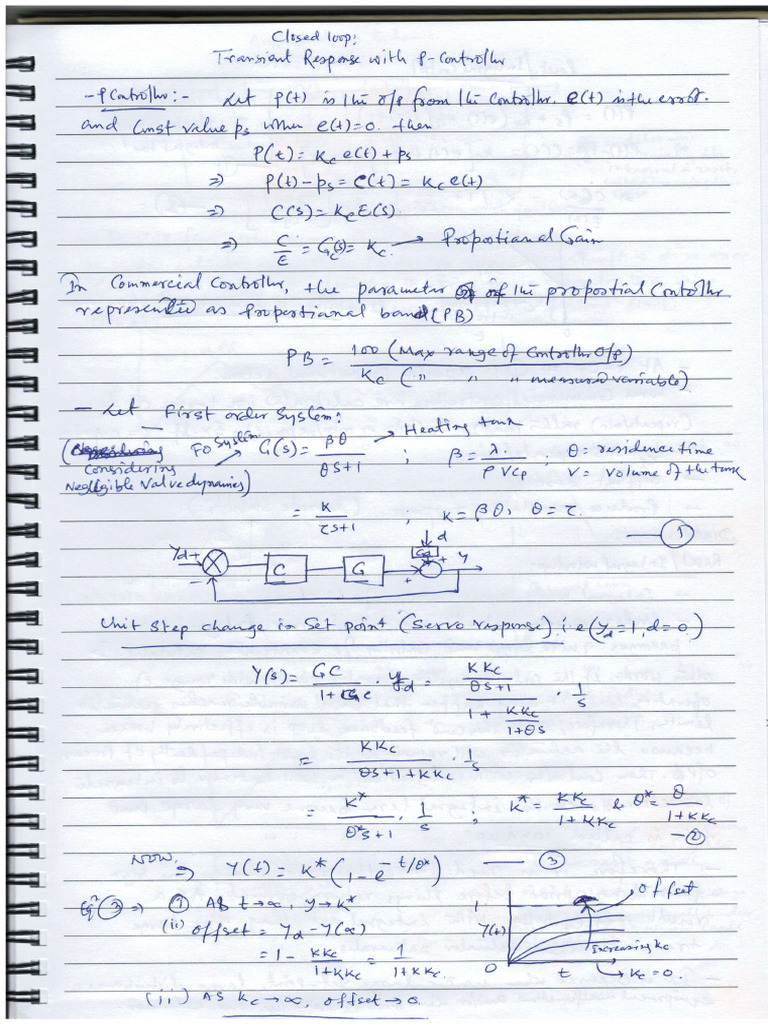 Closed loop:
Transient Response with P-Controller
- P Controller :- Let P(t) is the o/p from the Controller. e(t) is the error.
and Const value ps when e(t)=0. then
P(t) = Kc e(t) + ps
⇒ P(t) - ps = C(t) = Kc e(t)
⇒ C(s) = Kc E(s).
⇒ C/E = Gc(s) = Kc. → Proportional Gain
In Commercial Controller, the parameter of the proportial Controller
represented as Proportional band (PB)
PB = 100 (Max range of Controller O/p) / Kc ( " " " measured variable)
- Let First order System:
(Considering Negligible Valve dynamics) FO System → G(s) = βθ / θs+1 → Heating tank ; β = λ / ρVcp ; θ = residence time
V = volume of the tank
= K / τs+1 ; K = βθ, θ = τ. — ①
Yd + - C G Gd d + + y
Unit Step change in Set point (Servo response) i.e (Yd = 1, d = 0)
Y(s) = GC / 1+GC · yd = KKc/θs+1 / 1 + KKc/1+θs · 1/s
= KKc / θs+1+KKc · 1/s
= K* / θ*s+1 · 1/s ; K* = KKc / 1+KKc & θ* = θ / 1+KKc — ②
NOW,
⇒ Y(t) = K* (1 - e^-t/θ*) — ③
Eqn ③ ⇒ ① AS t→∞, y→K*
(ii) offset = Yd - Y(∞)
= 1 - KKc / 1+KKc = 1 / 1+KKc.
(ii) AS Kc→∞, offset→0.
Offset
1
Y(t)
Increasing Kc
0 t → Kc = 0.